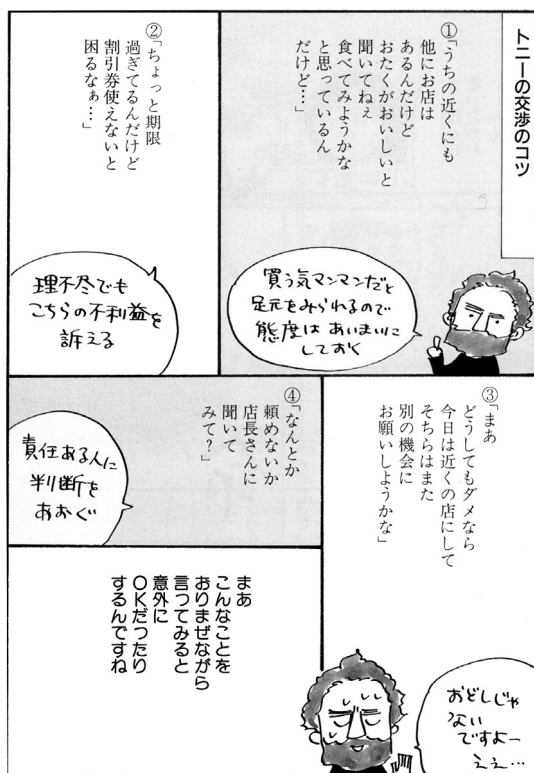 トニーの交渉のコツ
①「うちの近くにも
他にお店は
あるんだけど
おたくがおいしいと
聞いてねぇ
食べてみようかな
と思っているん
だけど…」
買う気マンマンだと
足元をみられるので
態度は あいまいに
しておく
②「ちょっと期限
過ぎてるんだけど
割引券使えないと
困るなぁ…」
理不尽でも
こちらの不利益を
訴える
③「まあ
どうしてもダメなら
今日は近くの店にして
そちらはまた
別の機会に
お願いしようかな」
おどしじゃ
ない
ですよー
ええ…
④「なんとか
頼めないか
店長さんに
聞いて
みて?」
責任ある人に
判断を
あおぐ
まあ
こんなことを
おりまぜながら
言ってみると
意外に
OKだったり
するんですね